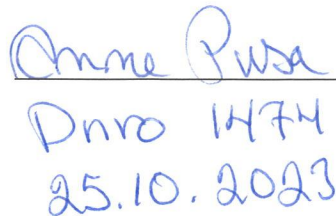 Anne Pusa
Dnro 1474
25.10.2023